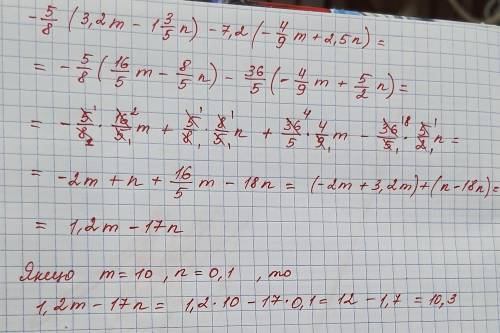 -5/8 (3,2m - 1 3/5 n) - 7,2 (-4/9 m + 2,5n) =
= -5/8 (16/5 m - 8/5 n) - 36/5 (-4/9 m + 5/2 n) =
= -5/8 · 16/5 m + 5/8 · 8/5 n + 36/5 · 4/9 m - 36/5 · 5/2 n =
= -2m + n + 16/5 m - 18n = (-2m + 3,2m) + (n - 18n) =
= 1,2m - 17n
Якщо m = 10, n = 0,1, то
1,2m - 17n = 1,2·10 - 17·0,1 = 12 - 1,7 = 10,3